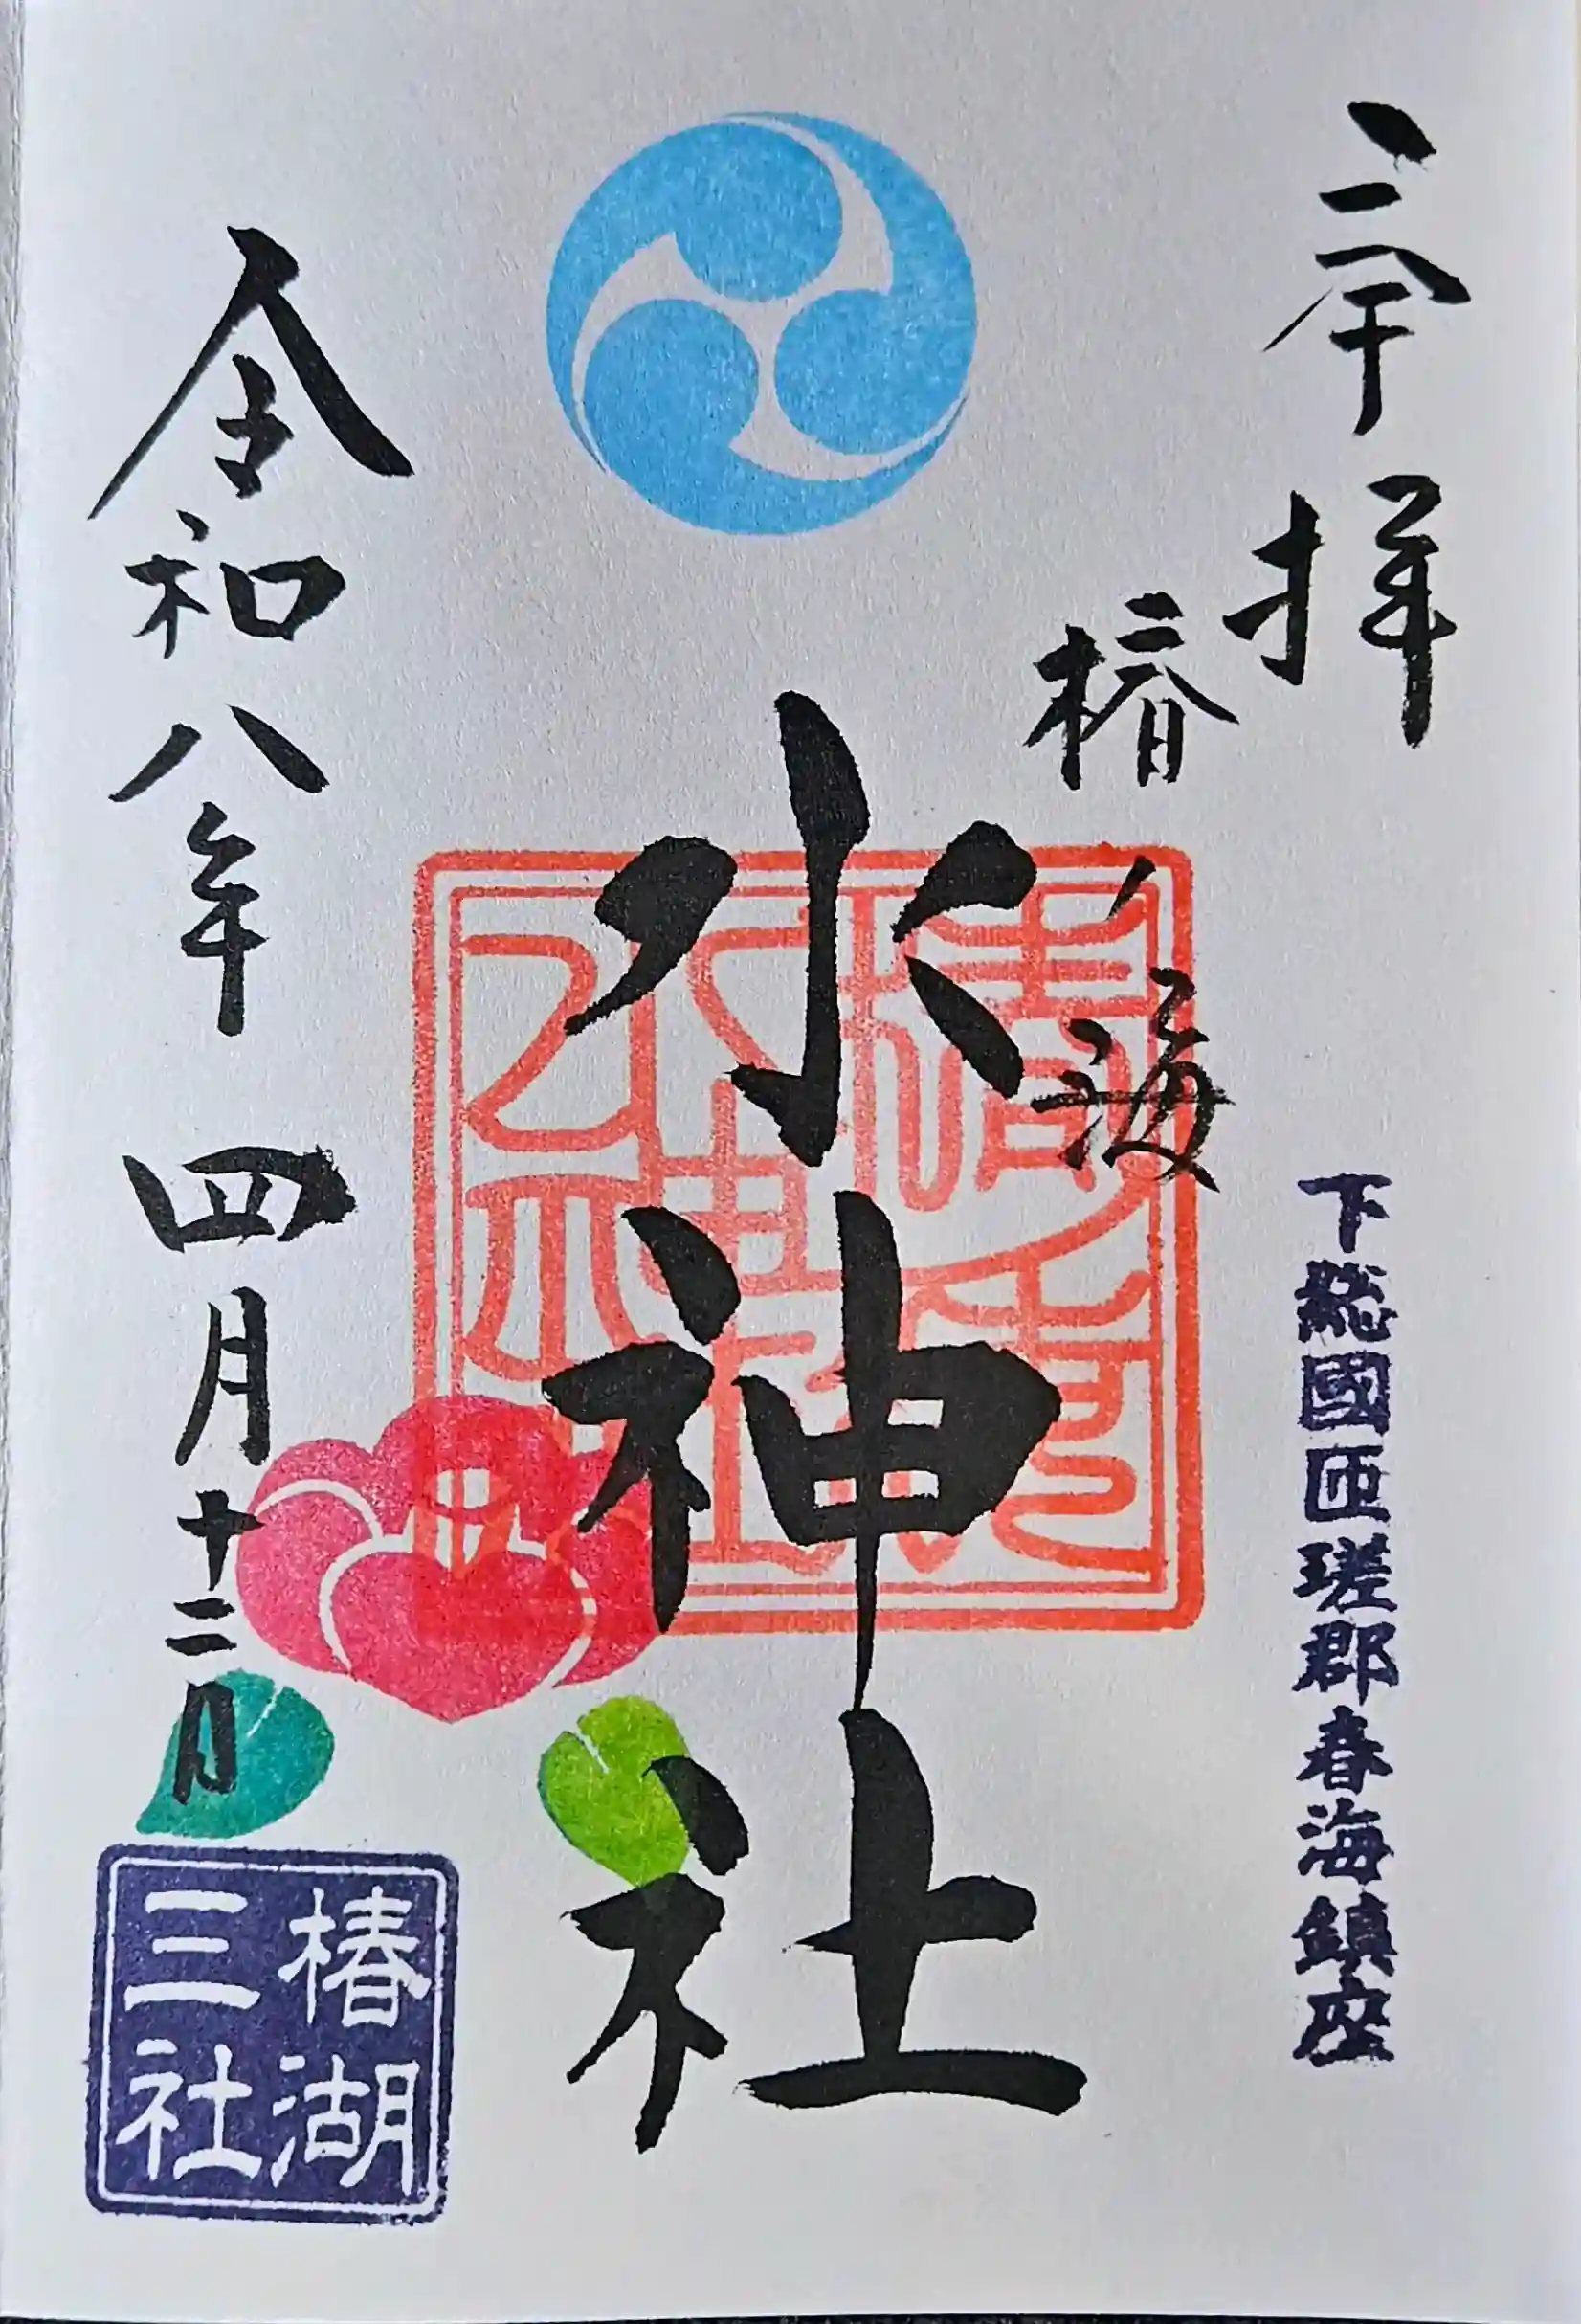 奉拝
下総國匝瑳郡春海鎮座
椿海
水神社
令和八年四月十二日
椿湖
三社